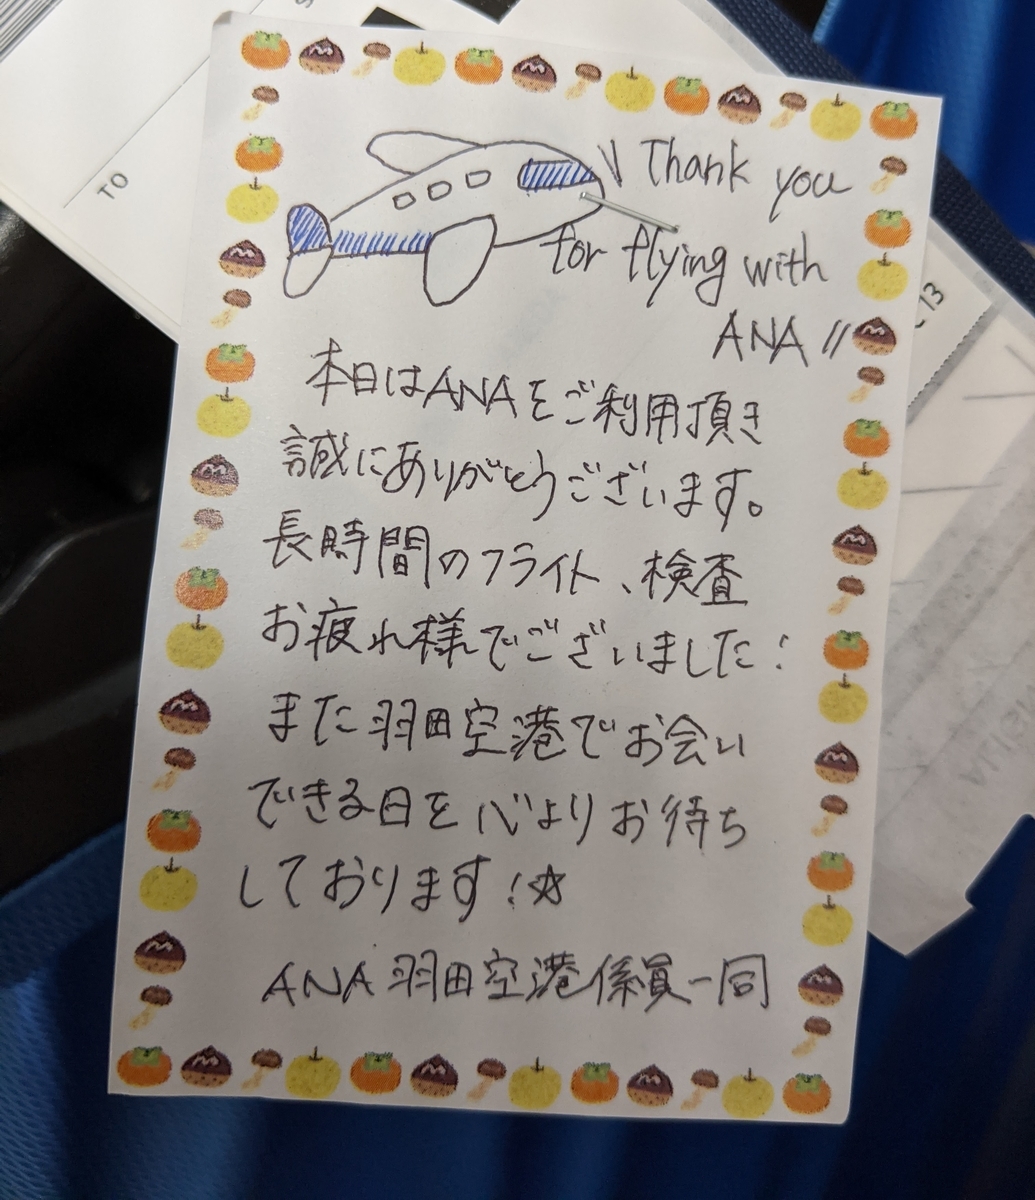 TO
\\ Thank you
for flying with
ANA //
本日はANAをご利用頂き
誠にありがとうございます。
長時間のフライト、検査
お疲れ様でございました!
また羽田空港でお会い
できる日を心よりお待ち
しております!☆
ANA 羽田空港係員一同